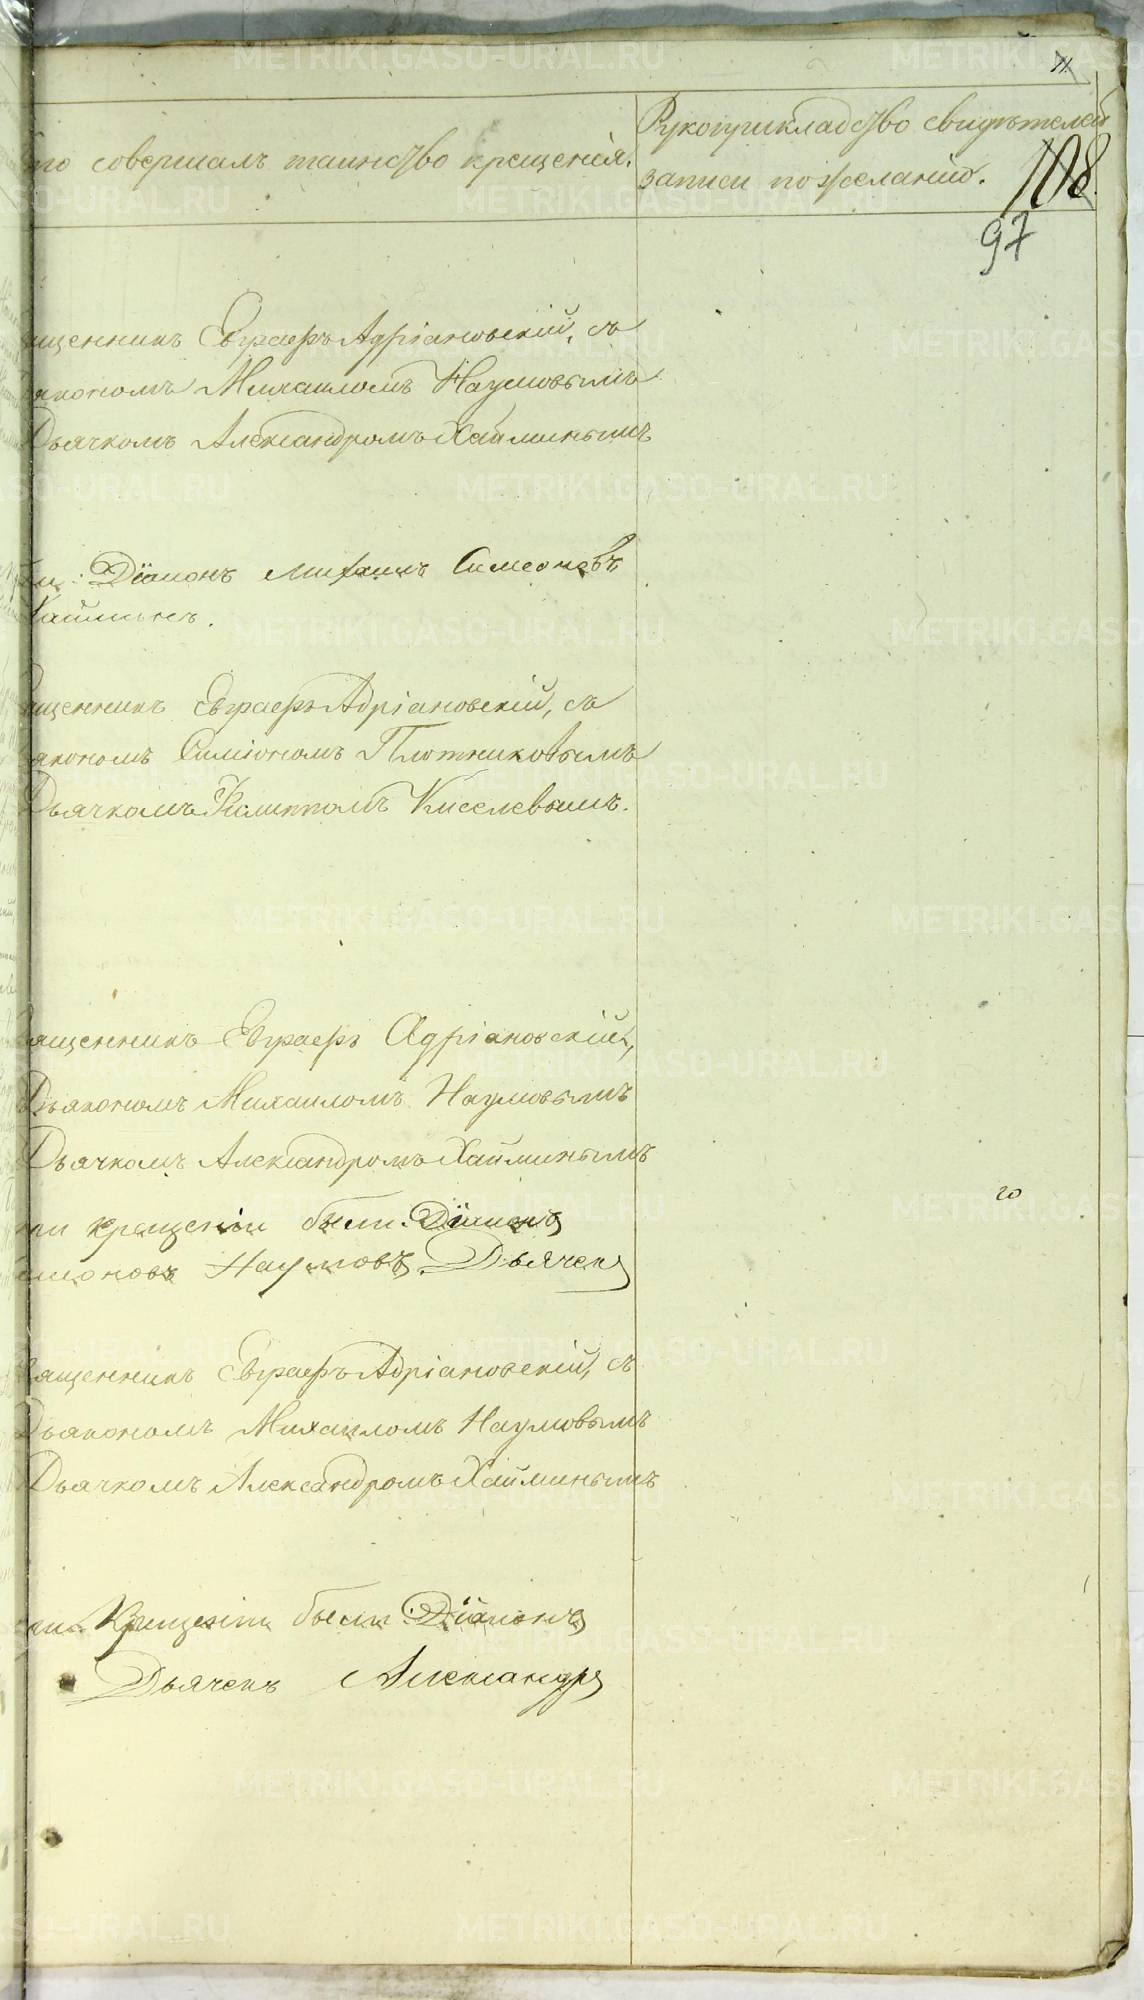 11
то совершалъ таинство крещенія.
Рукоприкладство свидѣтелей
записи по желанію.
108.
97
ященникъ Евграфъ Адріановскій, съ
якономъ Михаиломъ Наумовымъ
Дьячкомъ Александромъ Хайминымъ
ли: Діаконъ Михаилъ Симеоновъ
Хайминъ.
ященникъ Евграфъ Адріановскій, съ
якономъ Симіономъ Плотниковымъ
Дьячкомъ Филиппомъ Киселевымъ.
ященникъ Евграфъ Адріановскій,
Дьякономъ Михаиломъ Наумовымъ
Дьячкомъ Александромъ Хайминымъ
ри крещеніи были: Діаконъ
имоновъ Наумовъ. Дьячекъ
ященникъ Евграфъ Адріановскій, съ
Дьякономъ Михаиломъ Наумовымъ
Дьячкомъ Александромъ Хайминымъ
ри Крещеніи были: Діаконъ
Дьячекъ Александръ
METRIKI.GASO-URAL.RU